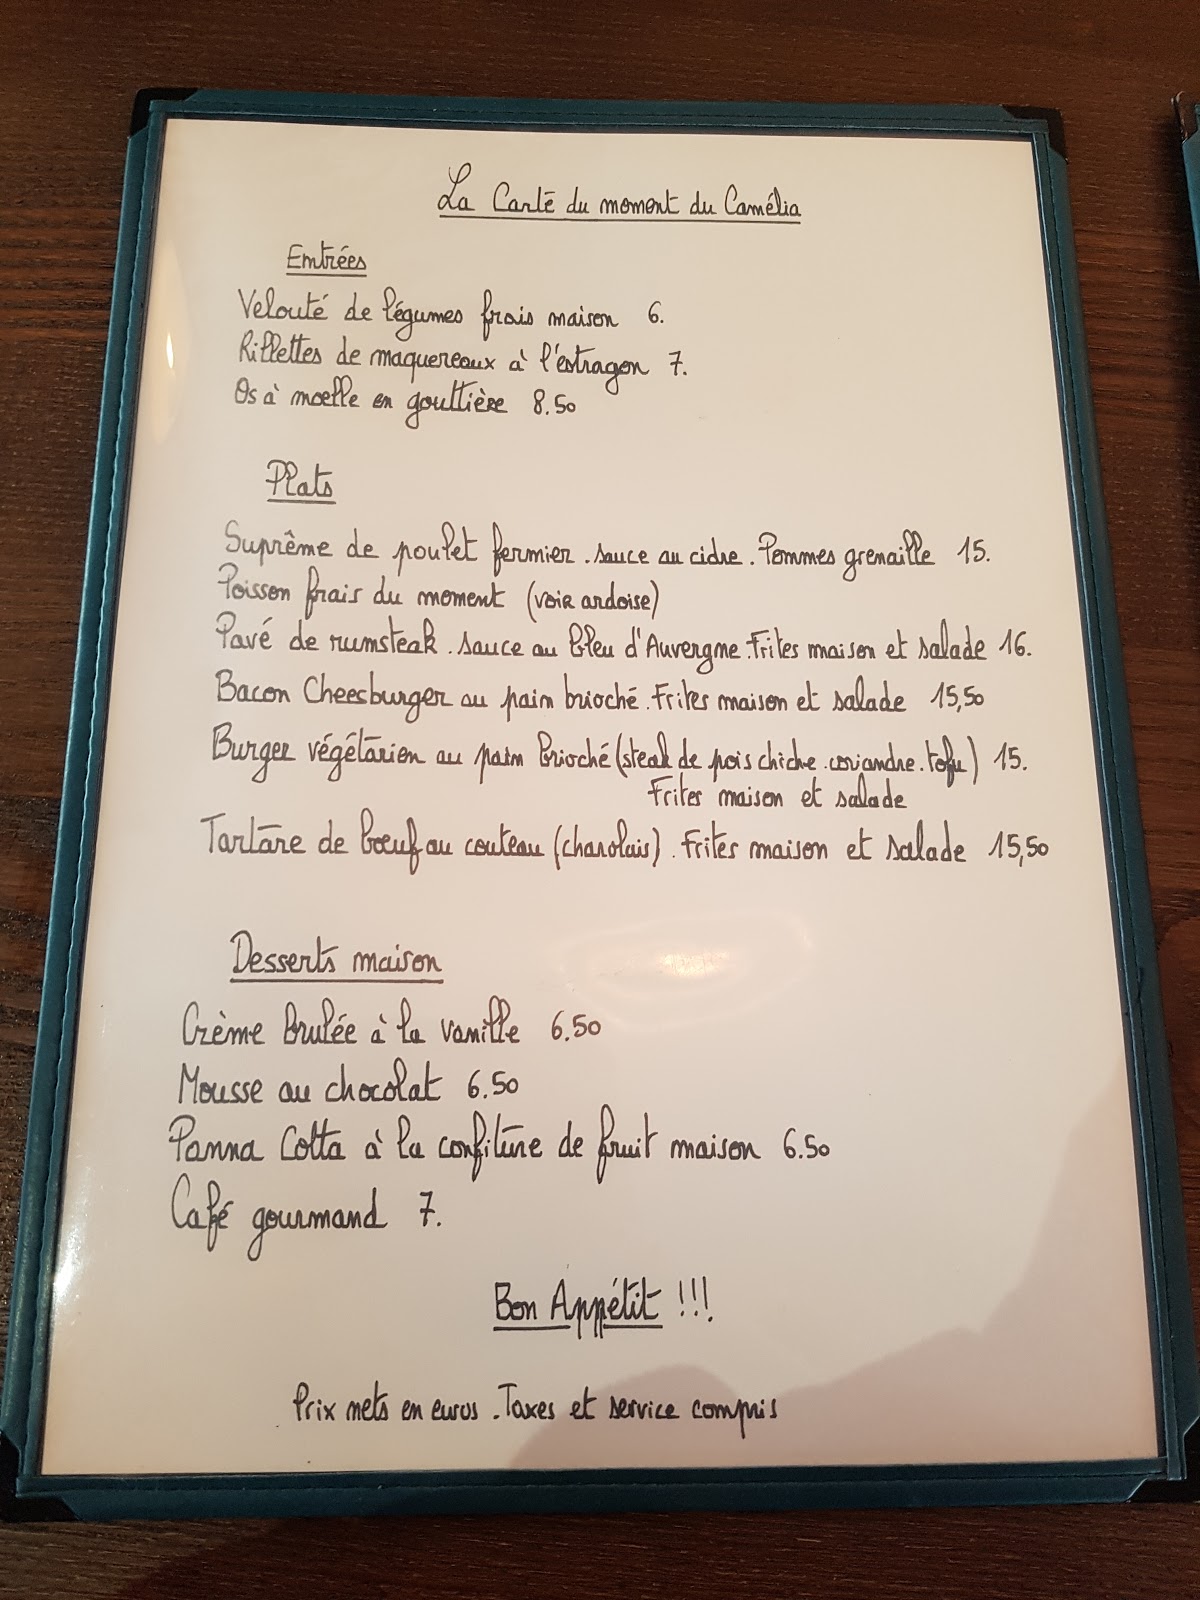 La Carte du moment du Camélia
Entrées
Velouté de légumes frais maison 6.
Rillettes de maquereaux à l'estragon 7.
Os à moelle en gouttière 8.50
Plats
Suprême de poulet fermier . sauce au cidre . Pommes grenaille 15.
Poisson frais du moment (voir ardoise)
Pavé de rumsteak . sauce au bleu d'Auvergne . Frites maison et salade 16.
Bacon Cheesburger au pain brioché . Frites maison et salade 15,50
Burger végétarien au pain brioché (steak de pois chiche . coriandre . tofu) 15.
Frites maison et salade
Tartare de bœuf au couteau (charolais) . Frites maison et salade 15,50
Desserts maison
Crème brulée à la vanille 6.50
Mousse au chocolat 6.50
Panna Cotta à la confiture de fruit maison 6.50
Café gourmand 7.
Bon Appétit !!!
Prix nets en euros . Taxes et service compris